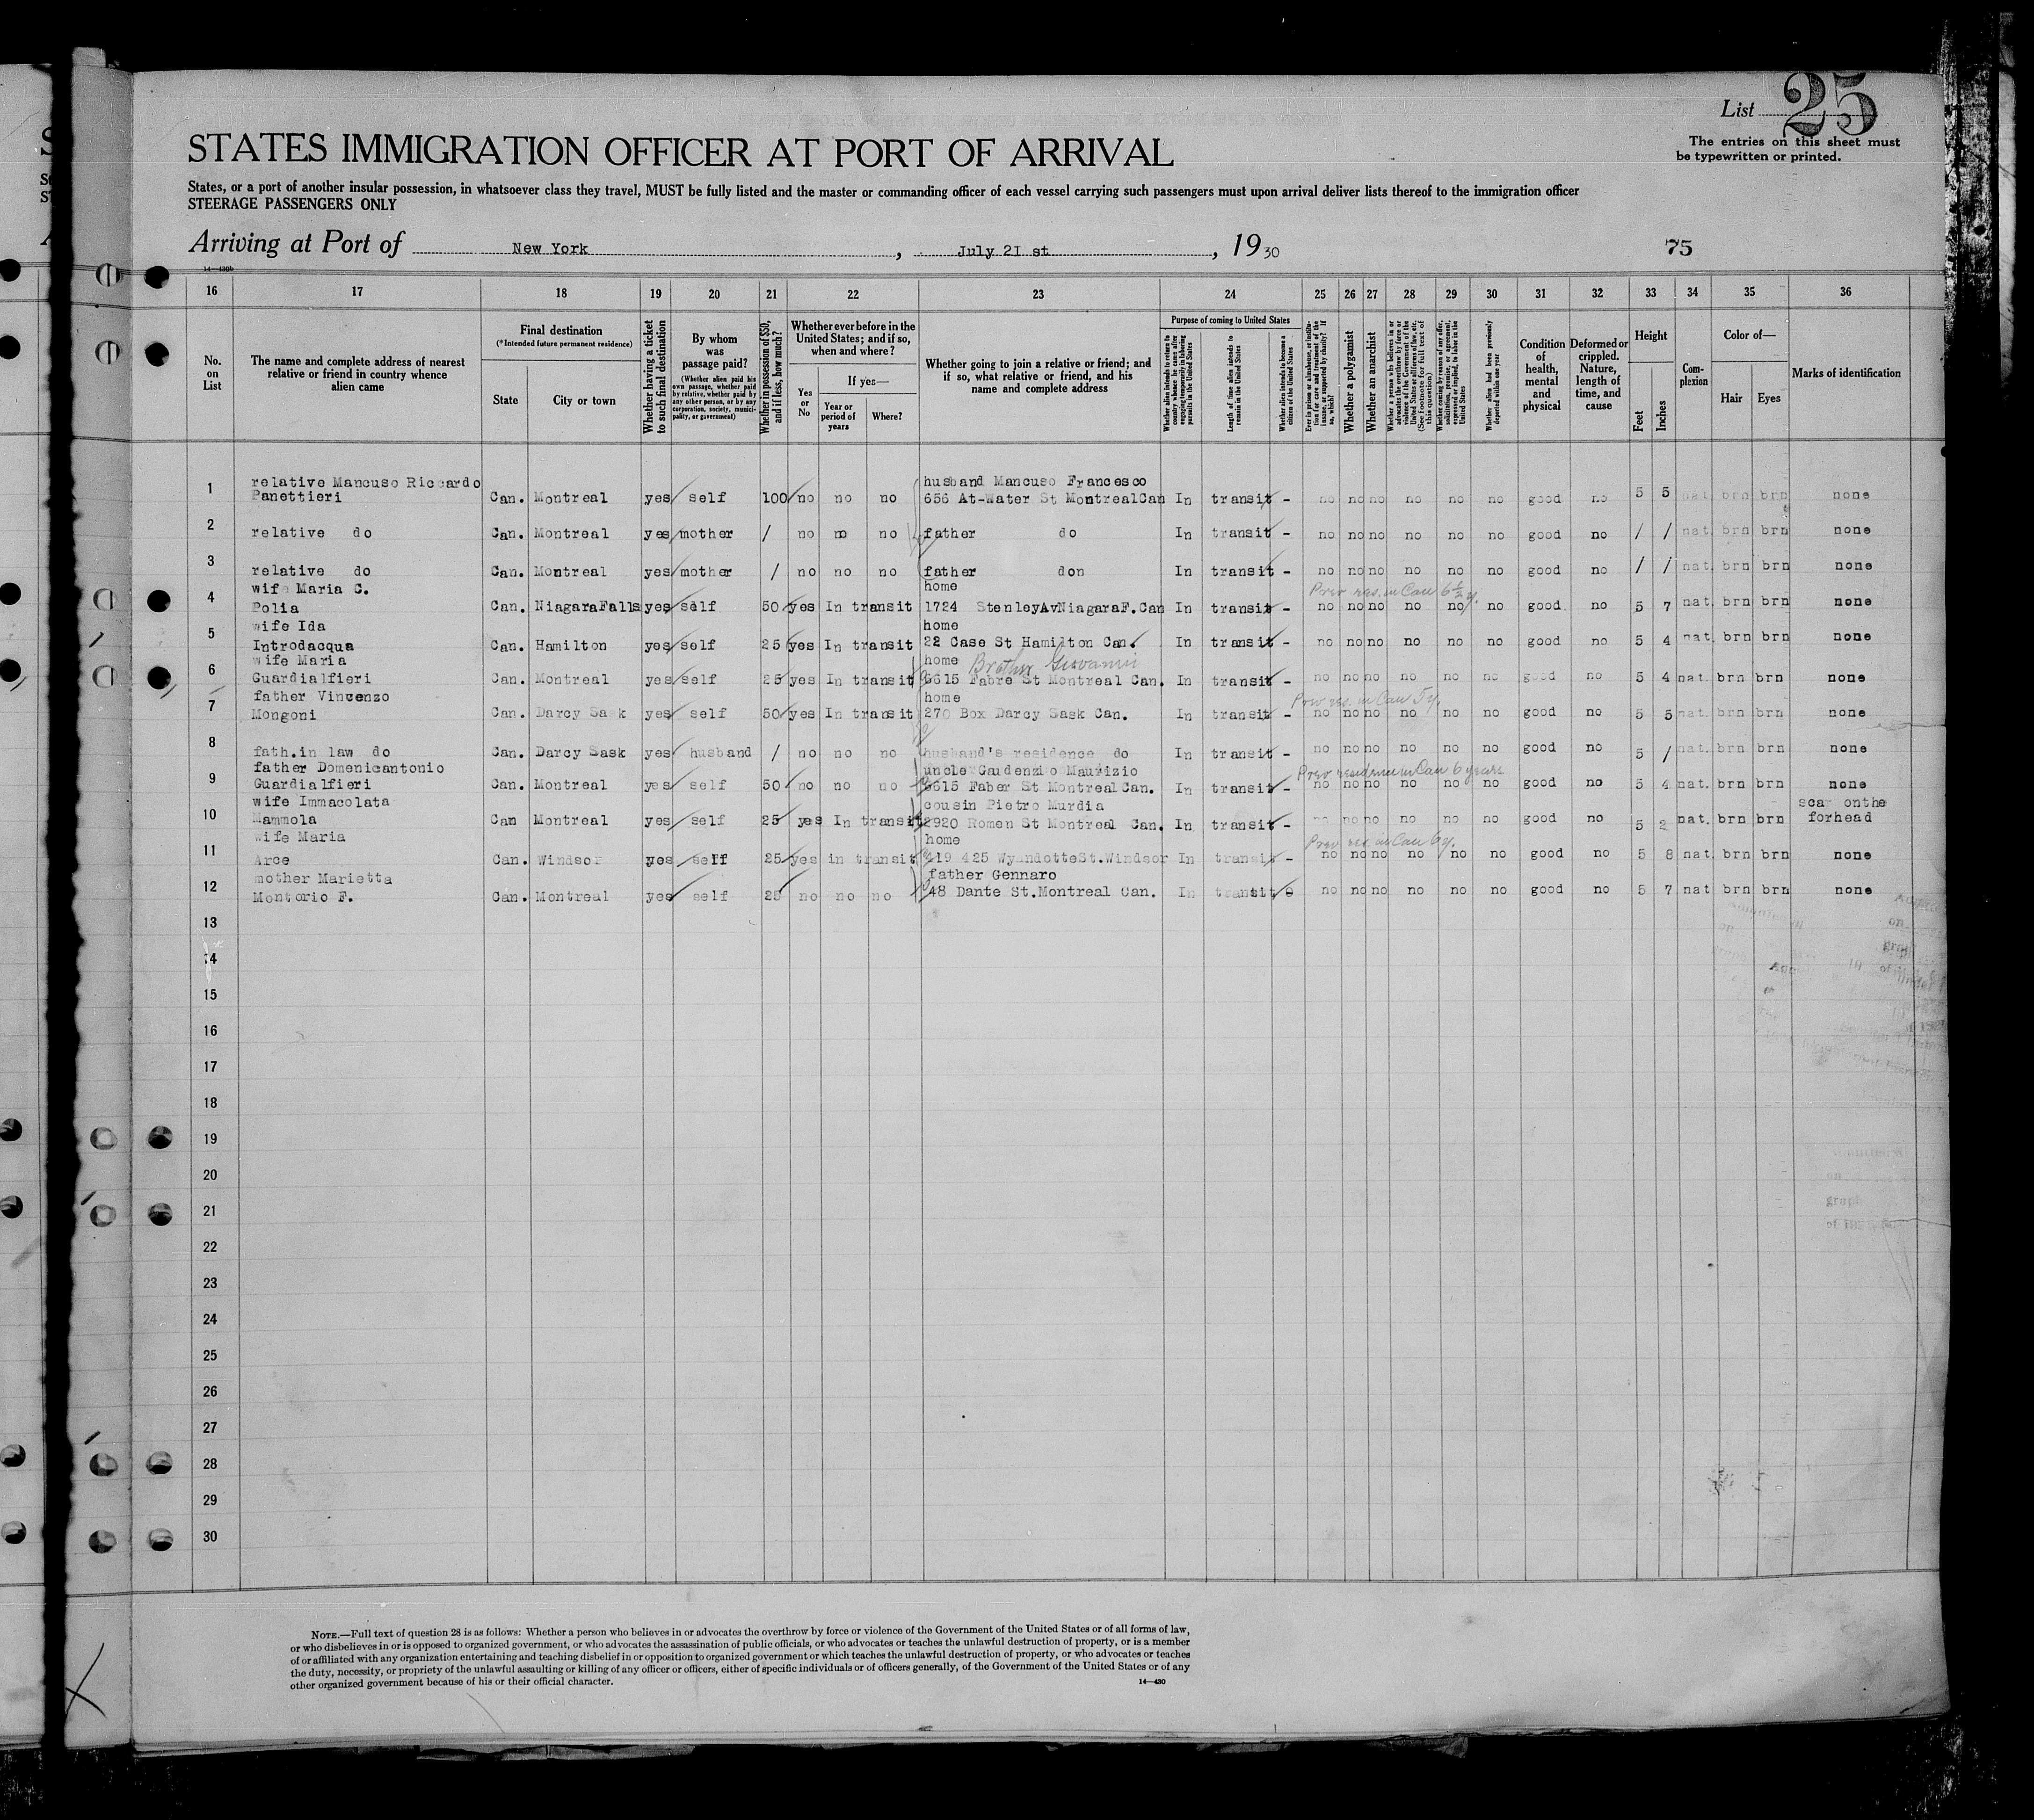 List 25
The entries on this sheet must
be typewritten or printed.
STATES IMMIGRATION OFFICER AT PORT OF ARRIVAL
States, or a port of another insular possession, in whatsoever class they travel, MUST be fully listed and the master or commanding officer of each vessel carrying such passengers must upon arrival deliver lists thereof to the immigration officer
STEERAGE PASSENGERS ONLY
Arriving at Port of New York, July 21 st, 1930 75
14—430b
16 17 18 19 20 21 22 23 24 25 26 27 28 29 30 31 32 33 34 35 36
No. on List
The name and complete address of nearest relative or friend in country whence alien came
Final destination
(*Intended future permanent residence)
State
City or town
Whether having a ticket to such final destination
By whom was passage paid?
(Whether alien paid his own passage, whether paid by relative, whether paid by any other person, or by any corporation, society, municipality, or government)
Whether in possession of $50, and if less, how much?
Whether ever before in the United States; and if so, when and where?
Yes or No
If yes—
Year or period of years
Where?
Whether going to join a relative or friend; and if so, what relative or friend, and his name and complete address
Purpose of coming to United States
Whether alien intends to return to country whence he came after engaging temporarily in laboring pursuits in the United States
Length of time alien intends to remain in the United States
Whether alien intends to become a citizen of the United States
Ever in prison or almshouse, or institution for care and treatment of the insane, or supported by charity? If so, which?
Whether a polygamist
Whether an anarchist
Whether a person who believes in or advocates the overthrow by force or violence of the Government of the United States or all forms of law, etc. (See footnote for full text of this question)
Whether coming by reason of any offer, solicitation, promise, or agreement, expressed or implied, to labor in the United States
Whether alien had been previously deported within one year
Condition of health, mental and physical
Deformed or crippled. Nature, length of time, and cause
Height
Feet
Inches
Complexion
Color of—
Hair
Eyes
Marks of identification
relative Mancuso Riccardo husband Mancuso Francesco
1 Panettieri Can. Montreal yes self 100 no no no 656 At-Water St MontrealCan In transit - no no no no no no good no 5 5 nat. brn brn none
2 relative do Can. Montreal yes mother / no no no father do In transit - no no no no no no good no / / nat. brn brn none
3 relative do Can. Montreal yes mother / no no no father don In transit - no no no no no no good no / / nat. brn brn none
wife Maria C. home Prev res. in Can 6½ y.
4 Polia Can. NiagaraFalls yes self 50 yes In transit 1724 StenleyAvNiagaraF.Can In transit - no no no no no no good no 5 7 nat. brn brn none
wife Ida home
5 Introdacqua Can. Hamilton yes self 25 yes In transit 22 Case St Hamilton Can. In transit - no no no no no no good no 5 4 nat. brn brn none
wife Maria home Brother Giovanni
6 Guardialfieri Can. Montreal yes self 25 yes In transit 6615 Fabre St Montreal Can. In transit - no no no no no no good no 5 4 nat. brn brn none
father Vincenzo home Prev res. in Can 5y.
7 Mongoni Can. Darcy Sask yes self 50 yes In transit 270 Box Darcy Sask Can. In transit - no no no no no no good no 5 5 nat. brn brn none
8 fath.in law do Can. Darcy Sask yes husband / no no no husband's residence do In transit - no no no no no no good no 5 / nat. brn brn none
father Domenicantonio uncle Gaudenzio Maurizio Prev residence in Can 6 years
9 Guardialfieri Can. Montreal yes self 50 no no no 6615 Faber St Montreal Can. In transit - no no no no no no good no 5 4 nat. brn brn none
wife Immacolata cousin Pietro Murdia scar onthe
10 Mammola Can Montreal yes self 25 yes In transit 2920 Romen St Montreal Can. In transit - no no no no no no good no 5 2 nat. brn brn forhead
wife Maria home Prev res. in Can 6y.
11 Arce Can. Windsor yes self 25 yes in transit 419 425 WyandotteSt.Windsor In transit - no no no no no no good no 5 8 nat. brn brn none
mother Marietta father Gennaro
12 Montorio F. Can. Montreal yes self 25 no no no 48 Dante St.Montreal Can. In transit no no no no no no good no 5 7 nat brn brn none
13
14
15
16
17
18
19
20
21
22
23
24
25
26
27
28
29
30
NOTE.—Full text of question 28 is as follows: Whether a person who believes in or advocates the overthrow by force or violence of the Government of the United States or of all forms of law,
or who disbelieves in or is opposed to organized government, or who advocates the assassination of public officials, or who advocates or teaches the unlawful destruction of property, or is a member
of or affiliated with any organization entertaining and teaching disbelief in or opposition to organized government or which teaches the unlawful destruction of property, or who advocates or teaches
the duty, necessity, or propriety of the unlawful assaulting or killing of any officer or officers, either of specific individuals or of officers generally, of the Government of the United States or of any
other organized government because of his or their official character.
14—430